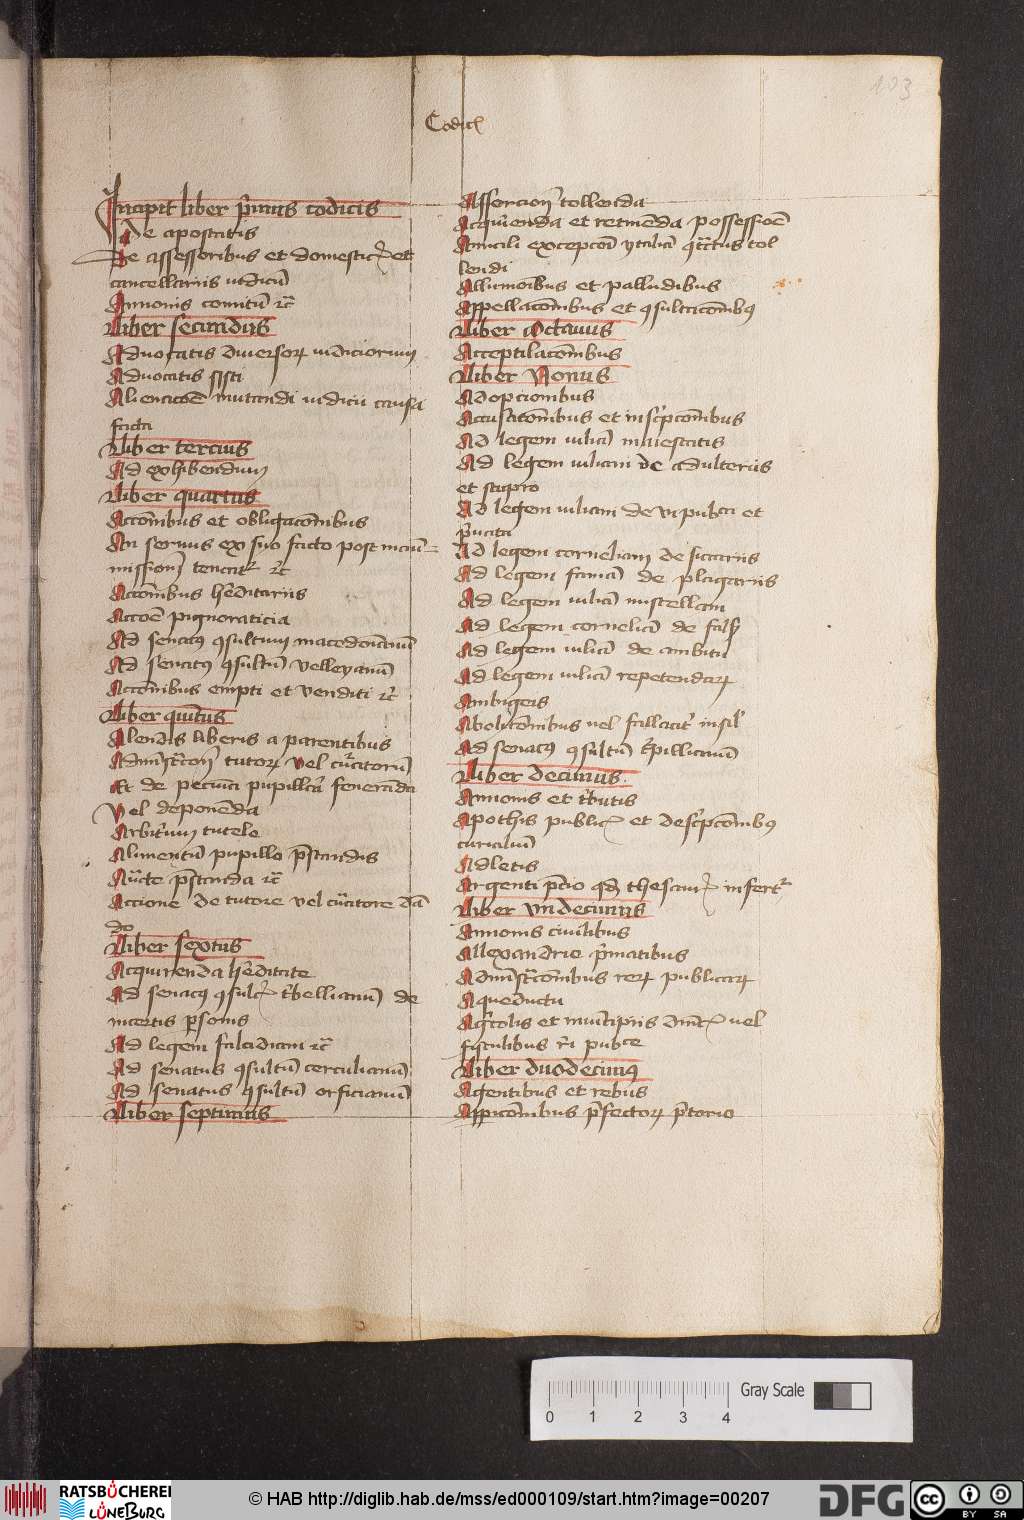 103
Codicis
Incipit liber primus codicis
De apostatis
De assessoribus et domesticis et
cancellariis iudicū
Annonis comitū
Liber secundus
Aduocatis diuersorꝝ iudiciorum
Aduocatis fisti
Alienacōē mutandi iudicii causa
facta
Liber tercius
Ad exhibendum
Liber quartus
Accōnibus et obligacōnibus
An seruus ex suo facto post manū
missionē teneatr̄
Accōnibus hēditariis
Accōē pignoraticia
Ad senatꝰ ꝯsultum macedonianū
Ad senatꝰ ꝯsultū velleyanū
Accōnibus empti et venditi
Liber quintus
Alendis liberis a parentibus
Admīstracōnē tutorꝝ vel curatorū
Et de pecunia pupillarī feneranda
Vel deponēda
Arbitrium tutele
Alimentū pupillo p̄standis
Auc̄te p̄standa
Accione de tutore vel curatore dan
do
Liber sextus
Acquirenda hēditate
Ad senatꝰ ꝯsult trebellianū de
incertis personis
Ad legem falcidiam
Ad senatus ꝯsultū tertulianū
Ad senatus ꝯsultū orficianū
Liber septimus
Assercionē tollenda
Acquirenda et retinēda possessiōē
Annali excepcōē ytalici ꝯtractus tol
lendi
Alluuioībus et palludibus
Appellacōnibus et ꝯsultacōnibꝰ
Liber Octauus
Acceptilacōnibus
Liber Nonus
Adopcionibus
Accusacōnibus et inscripcōnibus
Ad legem iuliā maiestatis
Ad legem iuliam de adulteriis
et stupro
Ad legem iuliam de vi publica et
priuata
Ad legem corneliam de sicariis
Ad legem fauiā de plagiariis
Ad legem iuliā
Ad legem corneliā de fals
Ad legem iuliā de ambitu
Ad legem iuliā repetendarꝝ
Ambigeis
Abolicōnibus vel
Ad senatꝰ ꝯsultū
Liber decimus
Annonis et tributis
Apothis publicis et descripcōnibꝰ
curialiū
Adletis
Argenti precio qd thesauris infertr̄
Liber vndecimus
Annonis ciuilibus
Allexandrie primatibus
Admīstracōnibus rerꝝ publicarꝝ
Aqueductu
Agricolis et mancipiis dn̄icis vel
fiscalibus rei publce
Liber duodecimꝰ
Agentibus et rebus
Apparitoribus p̄fectorꝝ p̄torio
Gray Scale
0 1 2 3 4
RATSBÜCHEREI
LÜNEBURG
© HAB http://diglib.hab.de/mss/ed000109/start.htm?image=00207
DFG
cc
BY SA